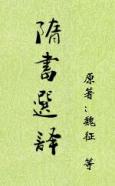 隋書選譯
原著：魏征 等